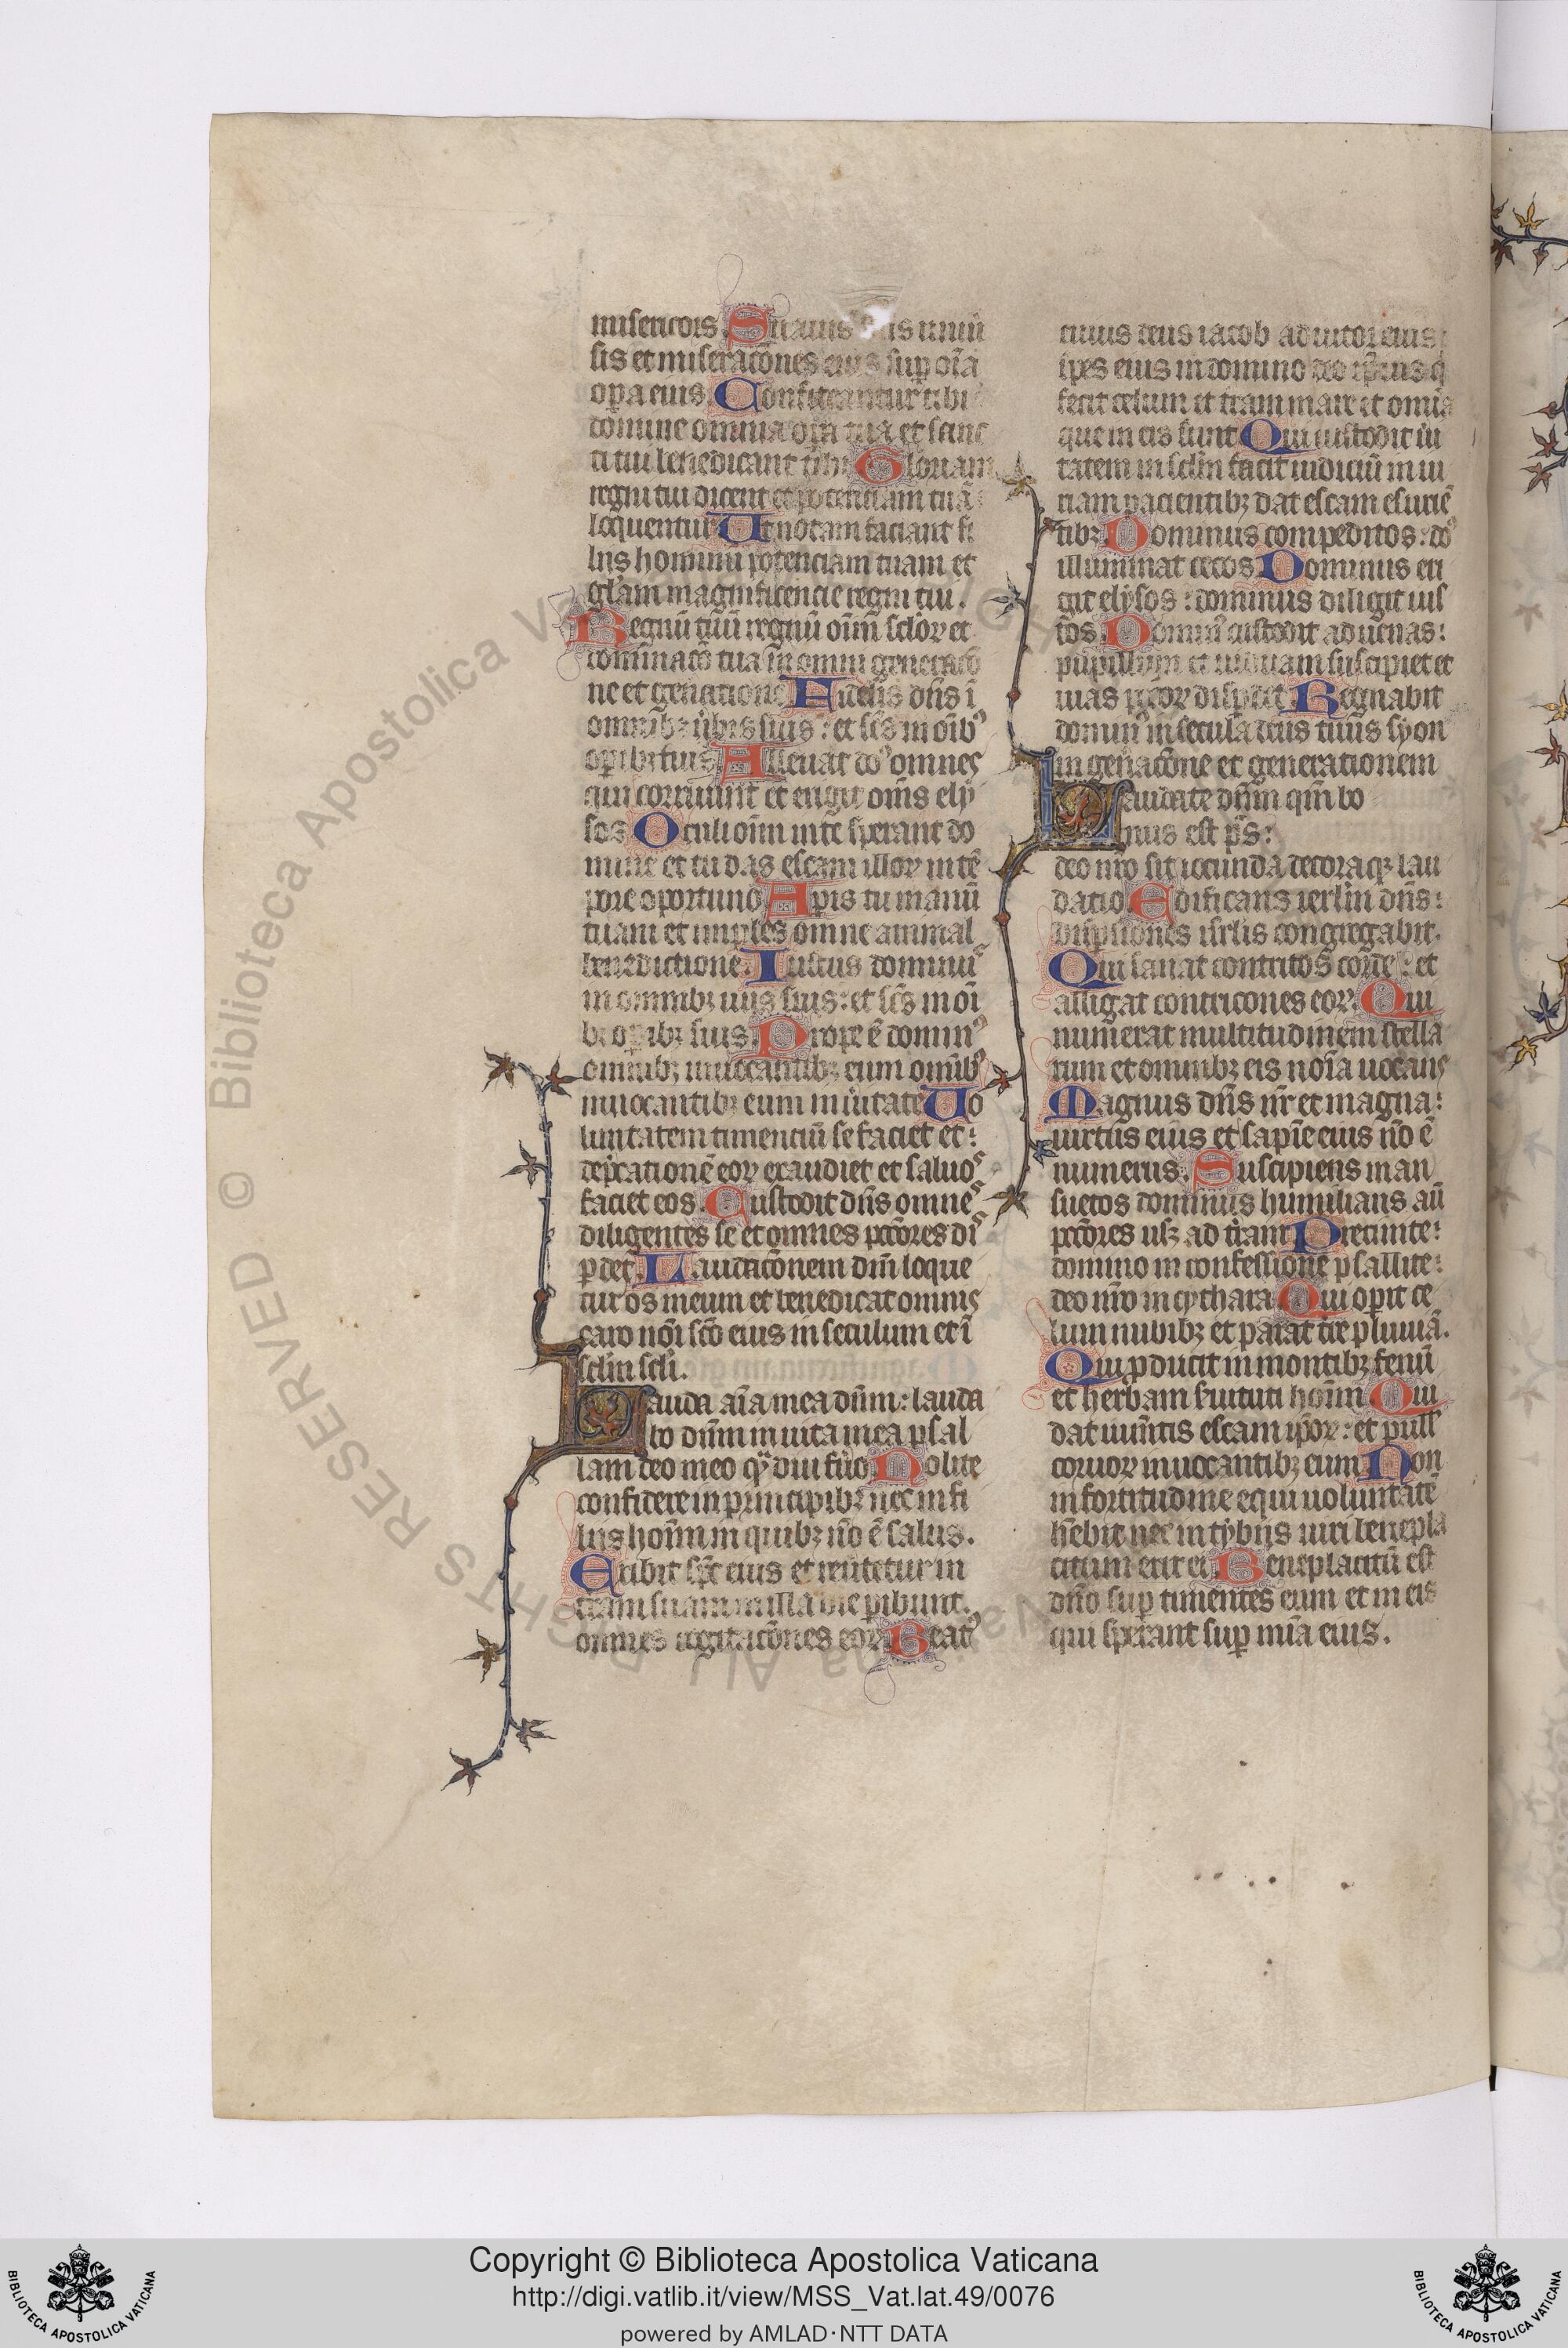 misericors Suauis dñs uniũ
sis et miseracõnes eius sup oĩa
opa eius Confiteantur tibi
domine omnia opa tua et sanc
ti tui benedicant tibi Gloriam
regni tui dicent et potenciam tuã
loquentur Ut notam faciant fi
liis hominũ potenciam tuam et
glãm magnificencie regni tui.
Regnũ tuũ regnũ oĩm sclõꝝ et
dominacõ tua in omni generacõ
ne et genatione Fidelis dñs ĩ
omnibꝫ ũbis suis: et scs̃ in oĩbꝰ
opibꝫ suis Alleuat doꝰ omnes
qui corruunt et erigit oms̃ ely
sos Oculi oĩm in te sperant do
mine et tu das escam illoꝝ in tẽ
pore oportuno Apis tu manũ
tuam et imples omne animal
benedictione Iustus dominus
in omnibꝫ uiis suis: et scs̃ in oĩ
bꝫ opibꝫ suis Prope ẽ dominꝰ
omnibꝫ inuocantibꝫ eum omĩbꝰ
inuocantibꝫ eum in ũitate Uo
luntatem timenciũ se faciet et:
dep̃cationẽ eoꝝ exaudiet et saluos
faciet eos Custodit dñs omnes
diligentes se et omnes pccõres dis
pdet Laudacõnem dñi loque
tur os meum et benedicat omnis
caro nõi scõ eius in seculum et ĩ
sclm̃ scli.
Lauda aĩa mea dñm: lauda
bo dñm in uita mea psal
lam deo meo qͣdiu fũo Nolite
confidere in principibꝫ nec in fi
liis hoĩm in quibꝫ nõ ẽ salus.
Exibit spc̃ eius et reũtetur in
tr̃am suam in illa die pibunt
omnes cogitacõnes eoꝝ Beatꝰ
cuius deus iacob adiutor eius
ip̃es eius in domino deo ip̃ius q̃
fecit celum et tr̃am mare et omia
que in eis sunt Qui custodit ũi
tatem in sclm̃ facit iudiciũ in iu
riam pacientibꝫ dat escam esuriẽ
tibꝫ Dominus compeditos: doꝰ
illuminat cecos Dominus eri
git elysos: dominus diligit ius
tos Dominꝰ custodit aduenas:
pupillum et uiduam suscipiet et
uias pccõꝝ dispdet Regnabit
dominꝰ in secula deus tuus syon
in genacõne et generationem
Laudate dñm qm̃ bo
nus est ps̃:
deo nr̃o sit iocunda decoraqꝫ lau
datio Edificans ierlm̃ dñs:
dispsiones isrl̃is congregabit.
Qui sanat contritos corde: et
alligat contricones eoꝝ Qui
numerat multitudinem stella
rum et omnibꝫ eis noĩa uocans
Magnus dñs nr̃ et magna:
uirtus eius et sapĩe eius nõ ẽ
numerus. Suscipiens man
suetos dominus humilians aũ
pccõres usqꝫ ad tr̃am Precinite:
domino in confessione psallite:
deo nr̃o in cythara Qui opit ce
lum nubibꝫ et parat tr̃e pluuiã.
Qui pducit in montibꝫ fenũ
et herbam seruituti hoĩm Qui
dat iumẽtis escam ip̃oꝝ: et pull
coruoꝝ inuocantibꝫ eum Non
in fortitudine equi uoluntatẽ
hẽbit nec in tybiis uiri benepla
citum erit ei Beneplacitũ est
dñо sup timentes eum et in eis
qui sperant sup mĩa eius.
Copyright © Biblioteca Apostolica Vaticana
http://digi.vatlib.it/view/MSS_Vat.lat.49/0076
powered by AMLAD·NTT DATA
BIBLIOTECA APOSTOLICA VATICANA
BIBLIOTECA APOSTOLICA VATICANA